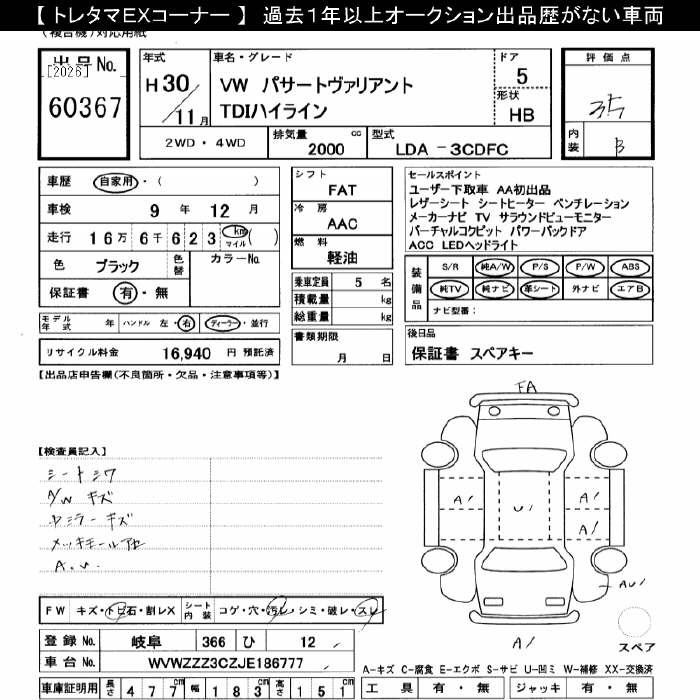 【 トレタマEXコーナー 】 過去１年以上オークション出品歴がない車両
(複合機)対応用紙
出品No.
[2026]
60367
年式
H 30／11月
車名・グレード
VW パサートヴァリアント
TDIハイライン
ドア
5
形状
HB
評価点
3.5
内装
B
2WD・4WD
排気量 cc
2000
型式
LDA －3CDFC
車歴 自家用・( )
車検 9 年 12 月
走行 16万 6千 6 2 3 km マイル ( )
色 ブラック 色替 カラーNo.
保証書 有・無
シフト
FAT
冷房
AAC
燃料
軽油
乗車定員 5 名
積載量 kg
総重量 kg
書類期限
月 日
セールスポイント
ユーザー下取車 AA初出品
レザーシート シートヒーター ベンチレーション
メーカーナビ TV サラウンドビューモニター
バーチャルコクピット パワーバックドア
ACC LEDヘッドライト
装備品
S/R 純A/W P/S P/W ABS
純TV 純ナビ 革シート 外ナビ エアB
ナビ型番：
モデル年式 年 ハンドル 左・右 ディーラー・並行
リサイクル料金 16,940 円 預託済
後日品
保証書 スペアキー
【出品店申告欄(不良箇所・欠品・注意事項等)】
【検査員記入】
シートシワ
A/W キズ
ドミラーキズ
A.U.
FA
A1
U1
A1
A1
AU1
A1
スペア
FW キズ・トビ石・割レX
シート内装 コゲ・穴・汚レ・シミ・破レ・スレ
登録No. 岐阜 366 ひ 12
車台No. WVWZZZ3CZJE186777
A－キズ C－腐食 E－エクボ S－サビ U－凹ミ W－補修 XX－交換済
車庫証明用 長さ 477cm 幅 183cm 高さ 151cm
工具 有・無 ジャッキ 有・無